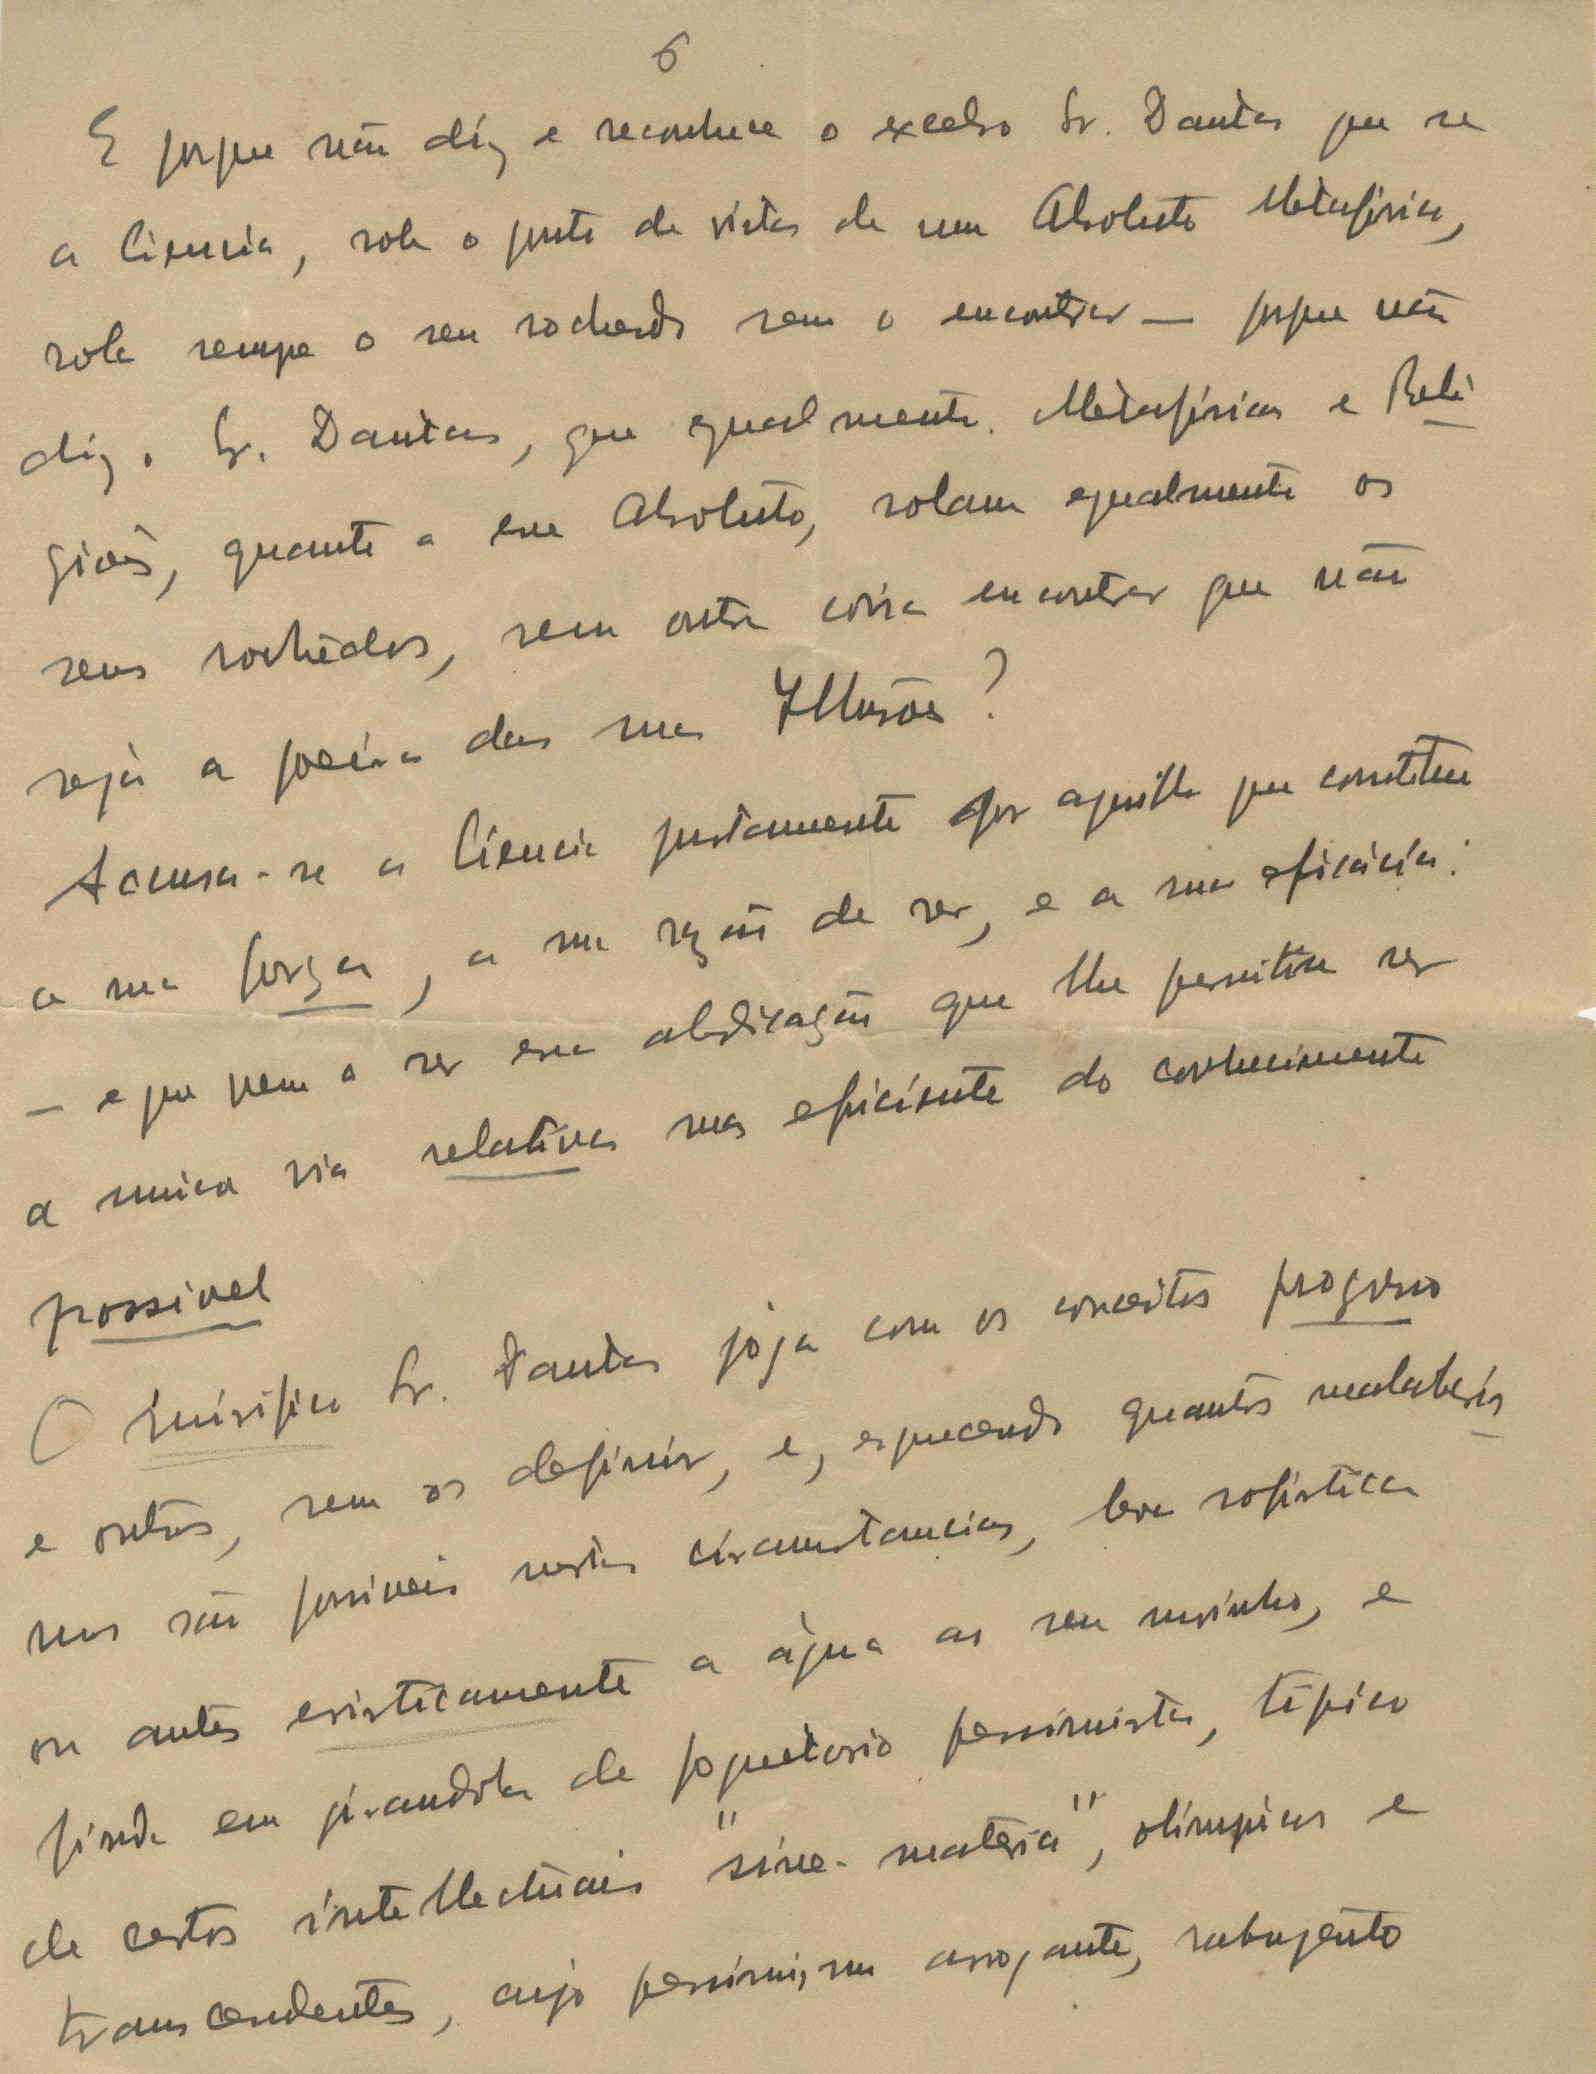 6
E porque não diz e reconhece o excelso Sr. Dantas que se
a Ciencia, sob o ponto de vista de um Absoluto Metafisico,
rola sempre o seu rochedo sem o encontrar — porque não
diz o Sr. Dantas, que egualmente Metafisicas e Reli
giões, quanto a esse Absoluto, rolam egualmente os
seus rochedos, sem outra coisa encontrar que não
seja a poeira das suas Illusões?
Accusa-se a Ciencia justamente por aquillo que constitue
a sua força, a sua razão de ser, e a sua eficácia:
— e que vem a ser essa abdicação que lhe permitiu ser
a unica via relativa mas eficiente do conhecimento
possivel
O mirifico Sr. Dantas joga com os conceitos progresso
e outros, sem os definir, e, esquecendo quantos malabaris
mos são possiveis nestas circumstancias, leva sofistica
ou antes eristicamente a água ao seu moinho, e
finda em girandola de foguetorio pessimista, tipico
de certos intellectuais "sine-materia", olimpicos e
transcendentes, cujo pessimismo arrogante, rabugento